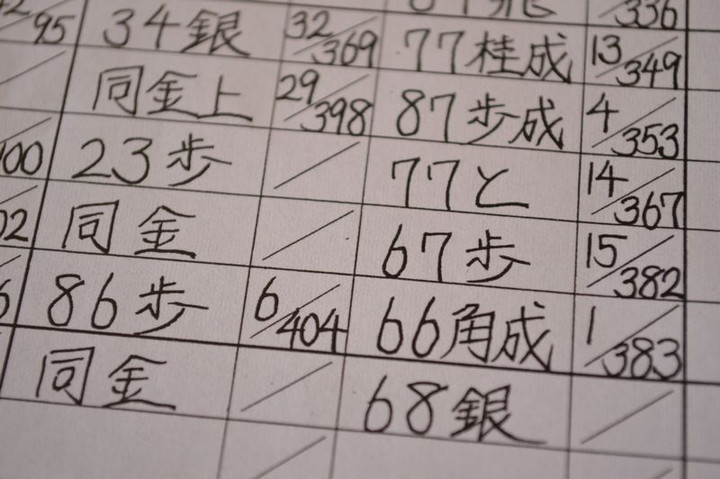 95 34銀 32/369 77桂成 13/349
同金上 29/398 87歩成 4/353
00 23歩 / 77と 14/367
02 同金 / 67歩 15/382
86歩 6/404 66角成 1/383
同金 / 68銀 /
336